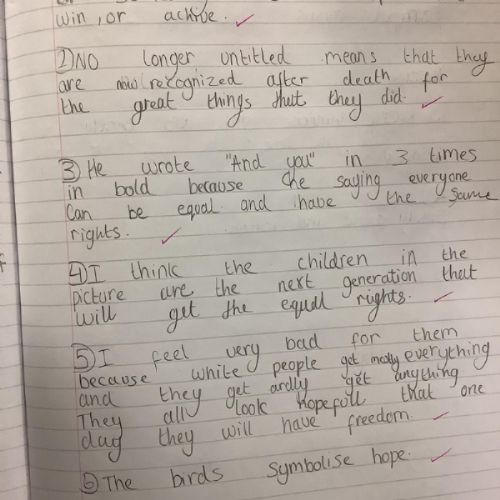 win, or achive.
2) NO longer untitled means that they
are now recognized after death for
the great things that they did.
3) He wrote "And you" in 3 times
in bold because he saying everyone
Can be equal and have the same
rights.
4) I think the children in the
picture are the next generation that
will get the equall rights.
5) I feel very bad for them
because white people got everything
and they get ardly get anything
They all look hopefull that one
day they will have freedom.
6) The birds symbolise hope.